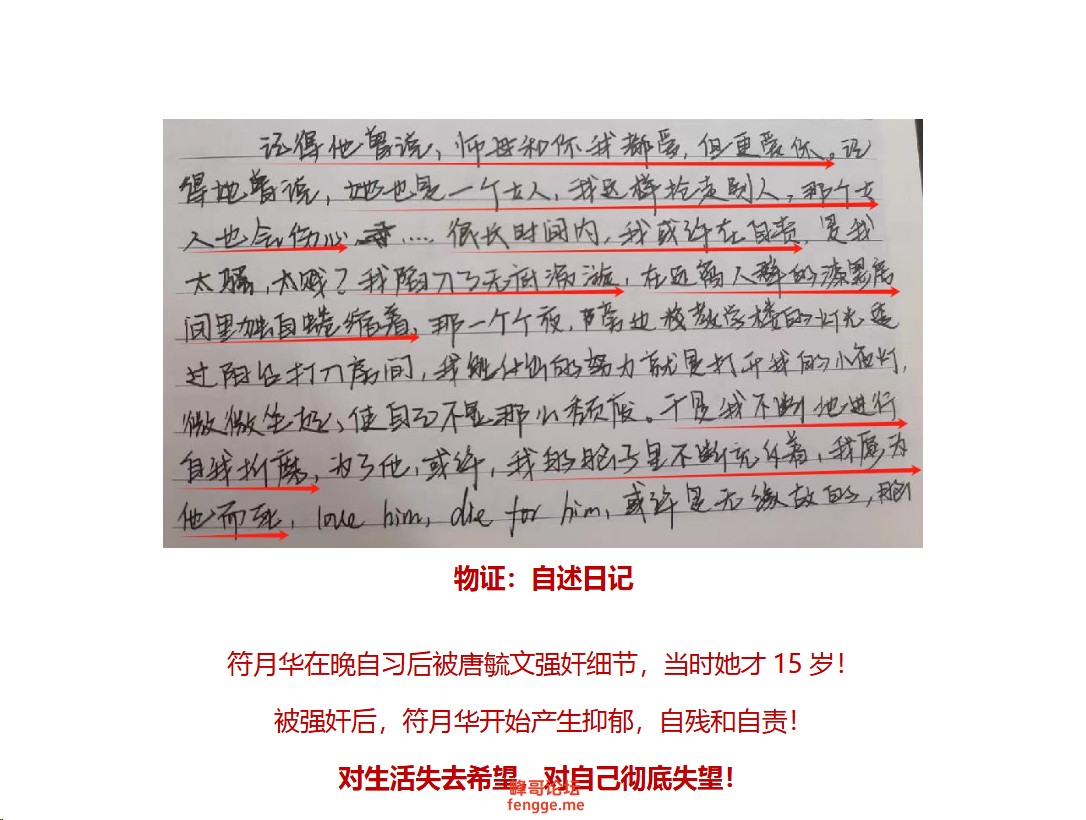 记得他曾说，师母和你我都爱，但更爱你。记
得他曾说，她也是一个女人，我这样抢走别人，那个女
人也会伤心……很长时间内，我或许在自责，是我
太骚，太贱？我陷入了无底漩涡，在远离人群的漆黑房
间里独自蜷缩着，那一个个夜，旁边教学楼的灯光透
过阳台打入房间，我能付出的努力就是打开我的小夜灯，
微微坐起，使自己不显那么颓废。于是我不断地进行
自我折磨，为了他，或许，我的脑子里不断充斥着，我愿为
他而死，love him, die for him, 或许是无缘故的，脑
物证：自述日记
符月华在晚自习后被唐毓文强奸细节，当时她才 15 岁！
被强奸后，符月华开始产生抑郁，自残和自责！
对生活失去希望，对自己彻底失望！
峰哥论坛
fengge.me